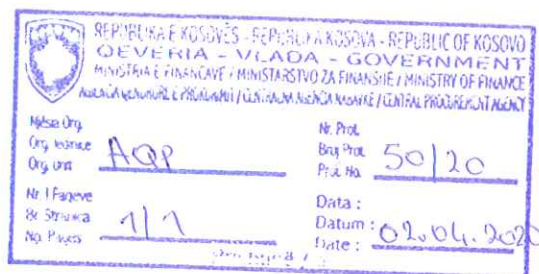 REPUBLIKA E KOSOVËS - REPUBLIKA KOSOVA - REPUBLIC OF KOSOVO
QEVERIA - VLADA - GOVERNMENT
MINISTRIA E FINANCAVE / MINISTARSTVO ZA FINANSIJE / MINISTRY OF FINANCE
AGJENCIA QENDRORE E PROKURIMIT / CENTRALNA AGENCIJA NABAVKE / CENTRAL PROCUREMENT AGENCY
Njësia Org.
Org. Jedinica
Org. Unit
AQP
Nr. Prot.
Broj Prot.
Prot. No.
50/20
Nr. i Faqeve
Br. Stranica
No. Pages
1/1
Data :
Datum :
Date :
02.04.2020